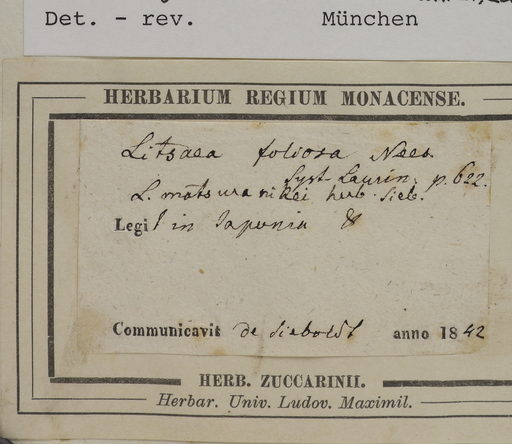 Det. - rev. München
HERBARIUM REGIUM MONACENSE.
Litsaea foliosa Nees
Syst. Laurin. p. 622.
L. matsura nikei herb. Sieb.
Legit in Japonia
Communicavit de Siebold anno 1842
HERB. ZUCCARINII.
Herbar. Univ. Ludov. Maximil.